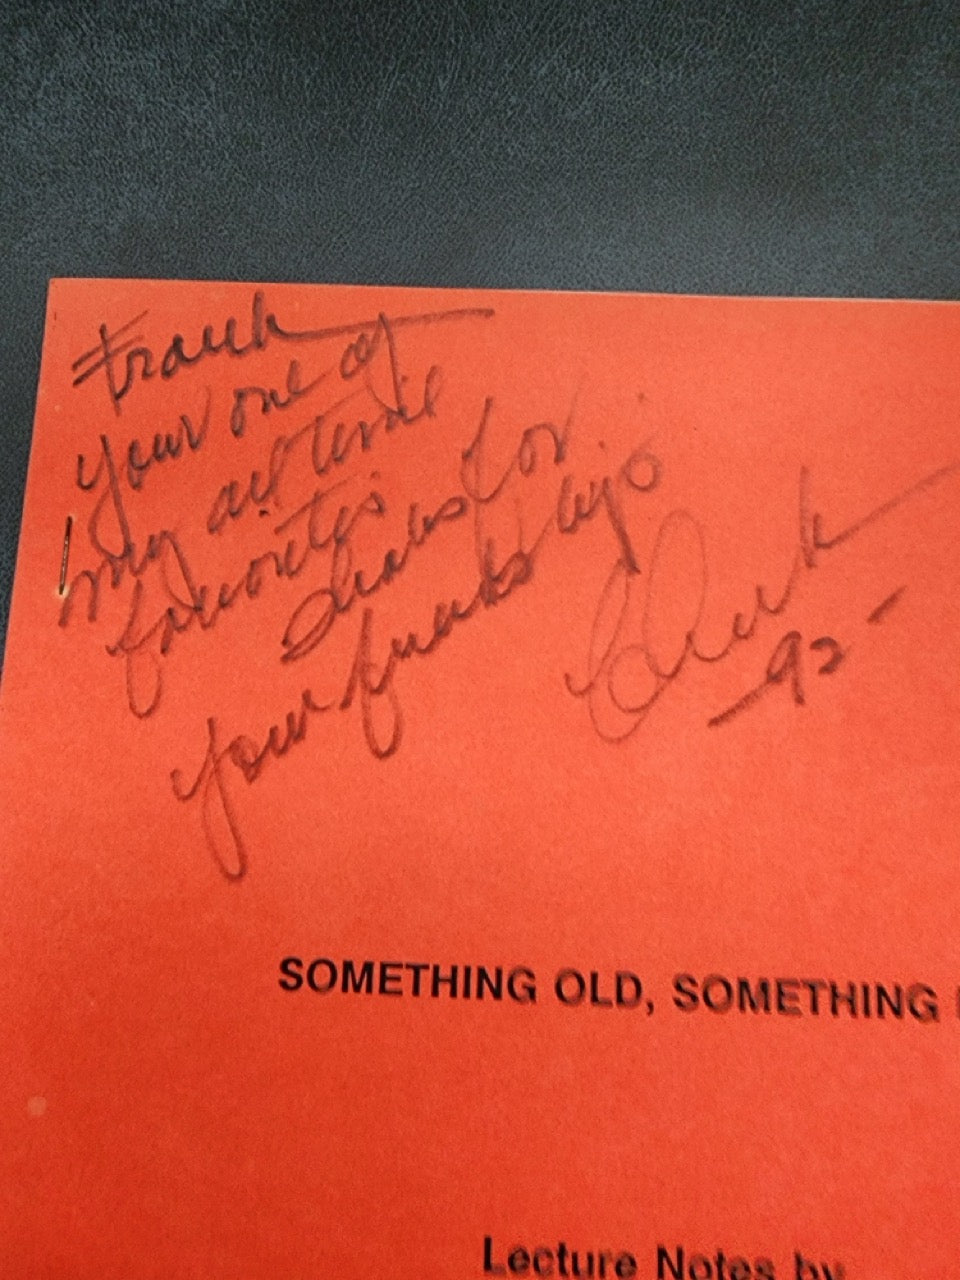 Frank
Your one of
my all time
favorites
thanks for
your friendship
Chuck
-92-
SOMETHING OLD, SOMETHING
Lecture Notes by